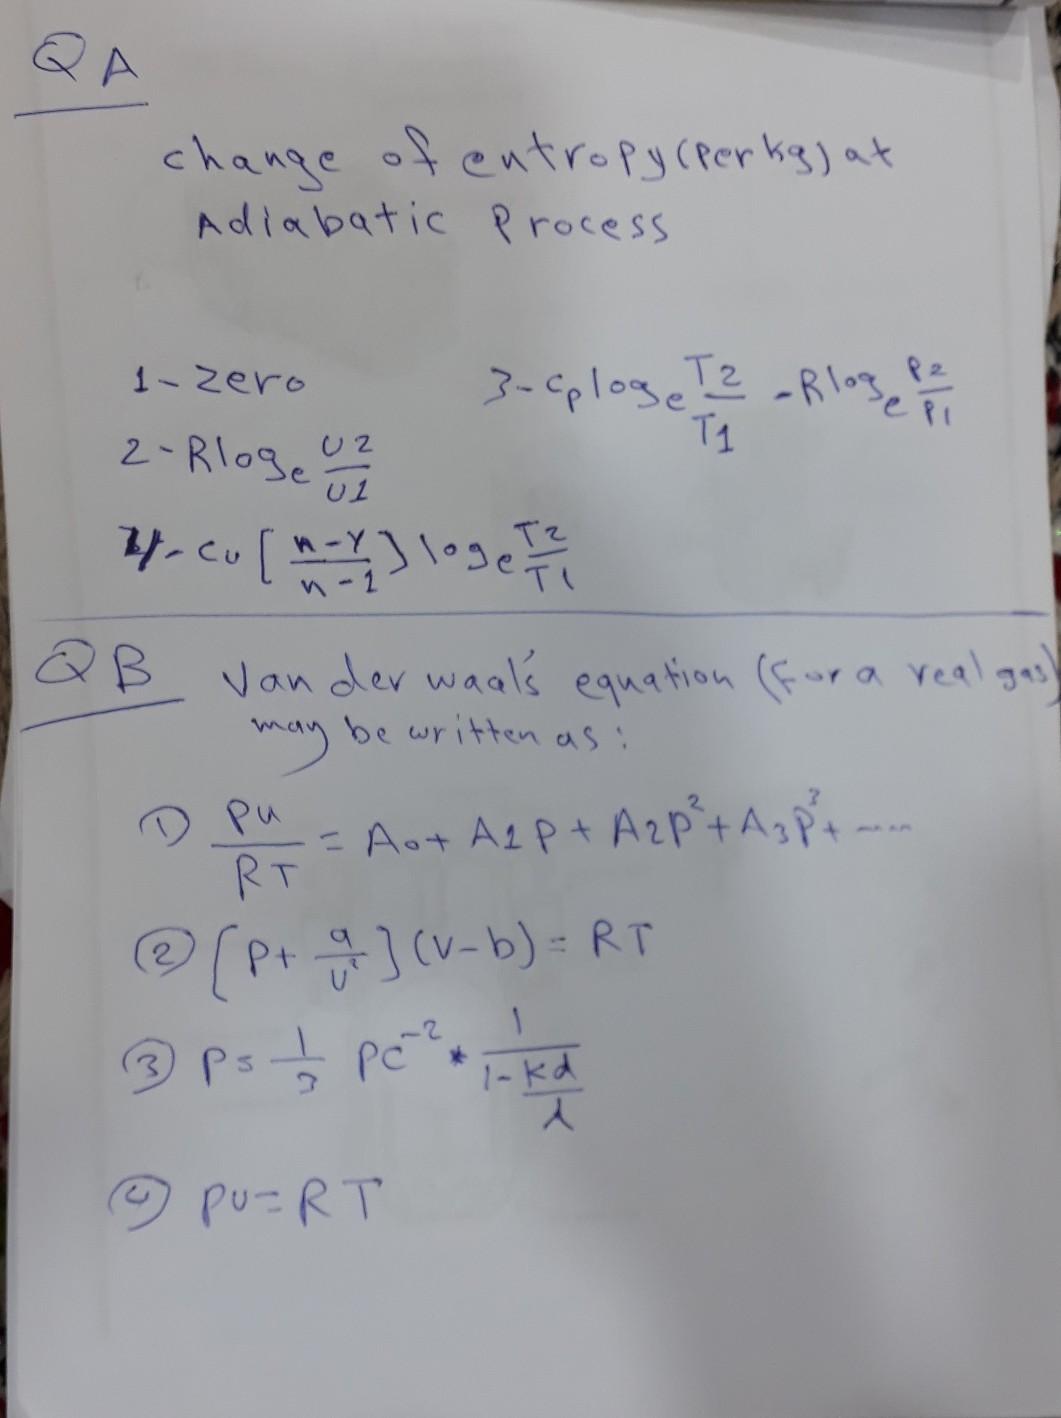 QA
change of entropy (per kg) at
Adiabatic Process
1- zero
3- cp loge T2/T1 - R loge P2/P1
2- R loge υ2/υ1
4- cυ [n-γ/n-1] loge T2/T1
QB Van der waal's equation (For a real gas)
may be written as:
① pu/RT = A0 + A1 p + A2 p² + A3 p³ + ......
② [p + a/υ²] (v-b) = RT
③ p = 1/3 ρc⁻² * 1/1-kd/λ
④ pυ = RT